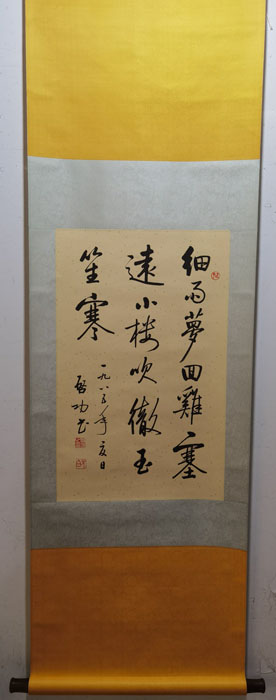 細雨夢回雞塞
遠小樓吹徹玉
笙寒
一九八五年夏日
啓功书